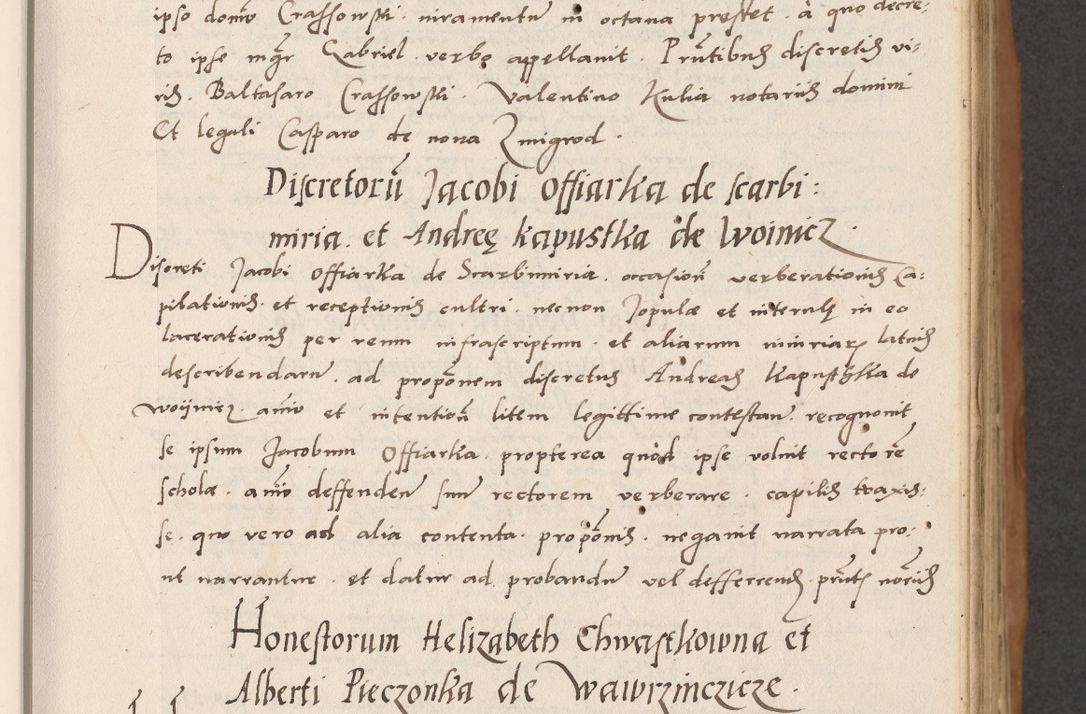 ipso domino Crassowski. iuramentum in octaua prestet. à quo decre:
to ipse mgr Gabriel. verbo appellauit. Pntibus discretis vi:
ris. Baltasaro Crassowski. Valentino Kulia notariis domini
Et legali Casparo de noua Zmigrod.
Discretorū Jacobi Offiarka de scarbi:
miria. et Andreę kapustka de Woinicz.
Discreti Jacobi Offiarka de Scarbimiria. occasion verberationis Ca:
pilationis. et receptionis cultri. necnon Jopulæ et interulę in eo
lacerationis per reum infrascriptum. et aliarum iniuriarum latius
describendarum. ad proponem discretus Andreas Kapustzka de
Woijnicz. animo et intention litem legittime contestan. recognouit
se ipsum Jacobum Offiarka. propterea quòd ipse voluit rectorē
scholæ. animo deffenden suum rectorem verberare. capilis traxis:
se. quo vero ad alia contenta. proponis. negauit narrata pro:
ut narrantur. et datur ad probandum vel defferrend. pntes norūs
Honestorum Helizabeth Chwastkowna et
Alberti Pieczonka de Wawrzinczicze.